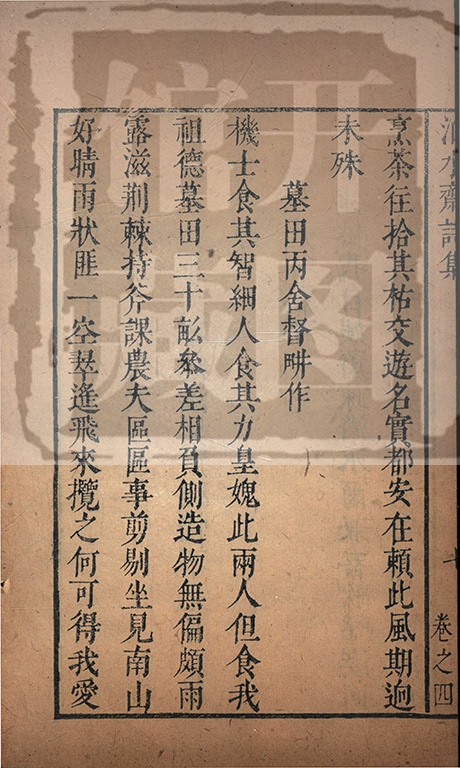 烹茶徃拾其枯交遊名實都安在頼此風期逈
未殊
墓田丙舍督畊作
機士食其智細人食其力皇媿此兩人但食我
祖德墓田三十畝叅差相負側造物無偏頗雨
露滋荆棘持斧課農夫區區事剪剔坐見南山
好晴雨狀匪一空翠逢飛來攬之何可得我愛
齋詩集
卷之四
開
館
圖
藏